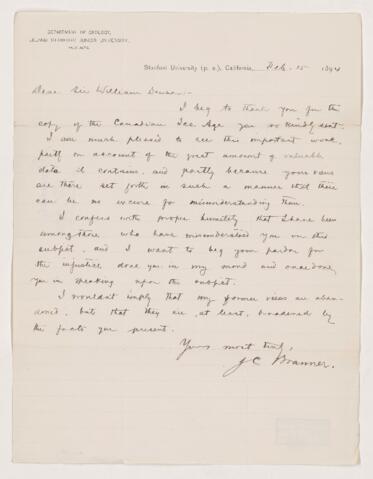 DEPARTMENT OF GEOLOGY,
LELAND STANFORD JUNIOR UNIVERSITY,
Stanford University (p. o.), California, Feb. 15 1894
Dear Sir William Dawson:-
I beg to thank you for the
copy of the Canadian Ice Age you so kindly sent.
I am much pleased to see this important work,
partly on account of the great amount of valuable
data it contains, and partly because your views
are there set forth in such a manner that there
can be no excuse for misunderstanding them.
I confess with proper humility that I have been
among those who have misunderstood you on this
subject, and I want to beg your pardon for
the injustice done you in my mind and once done
you in speaking upon the subject.
I wouldn't imply that my former views are aban-
doned, but that they are, at least, broadened by
the facts you present.
Yours most truly,
J C Branner.